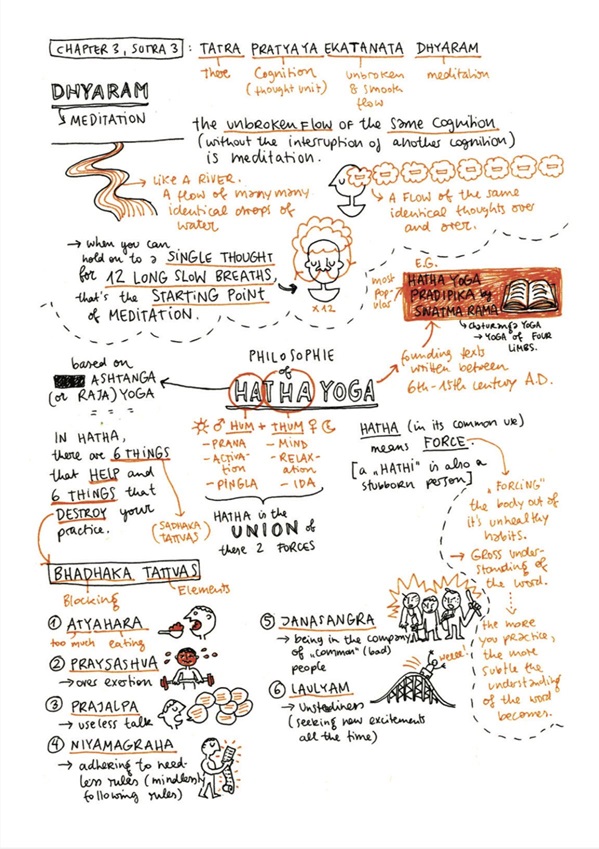 CHAPTER 3, SUTRA 3 : TATRA PRATYAYA EKATANATA DHYARAM
There
Cognition
(thought unit)
unbroken
& smooth
flow
meditation
DHYARAM
↳ MEDITATION
the UNBROKEN FLOW of the SAME COGNITION
(without the interruption of another cognition)
is MEDITATION.
→ LIKE A RIVER.
A flow of many many
identical drops of
water
↳ A FLOW OF the SAME
identical thoughts over
and over.
→ when you can
hold on to a SINGLE THOUGHT
for 12 LONG SLOW BREATHS,
that's the STARTING POINT
of MEDITATION.
x12
E.G.
most
pop-
ular
HATHA YOGA
PRADIPIKA by
SWATMA RAMA
↳ chaturanga YOGA
→ YOGA OF FOUR
LIMBS.
founding texts
written between
6th-15th century A.D.
PHILOSOPHIE
of
HATHA YOGA
based on
ASHTANGA
(or RAJA) YOGA
HUM + THUM
- PRANA
- ACTIVA-
TION
- PINGLA
- MIND
- RELAX-
ation
- IDA
HATHA is the
UNION of
these 2 FORCES
HATHA (in its common use)
means FORCE.
[a „HATHI" is also a
stubborn person]
„FORCING"
the body out of
it's unhealthy
habits.
→ GROSS under-
standing of
the word.
the more
you practice,
the more
subtle the
understanding
of the word
becomes.
IN HATHA,
there are 6 THINGS
that HELP and
6 THINGS that
DESTROY your
practice.
(SADHAKA
TATTVAS)
BHADHAKA TATTVAS
Blocking
Elements
① ATYAHARA
too much eating
② PRAYSASHUA
→ over exertion
③ PRAJALPA
→ useless talk
④ NIYAMAGRAHA
→ adhering to need-
less rules (mindlessly
following rules)
⑤ JANASANGRA
→ being in the company
of „common" (bad)
people
⑥ LAULYAM
→ Unstediness
(seeking new excitements
all the time)